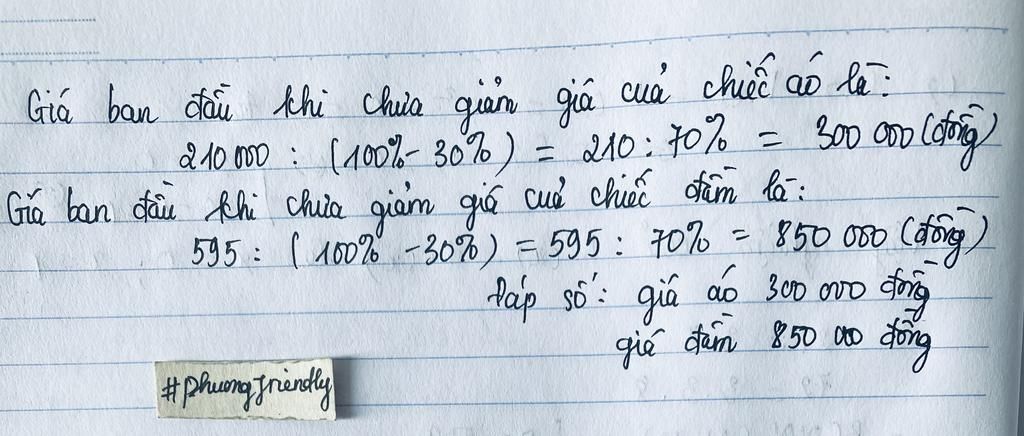 Giá ban đầu khi chưa giảm giá của chiếc áo là:
210 000 : (100% - 30%) = 210 : 70% = 300 000 (đồng)
Giá ban đầu khi chưa giảm giá của chiếc đầm là:
595 : (100% - 30%) = 595 : 70% = 850 000 (đồng)
Đáp số: giá áo 300 000 đồng
giá đầm 850 000 đồng
#phuongfriendly